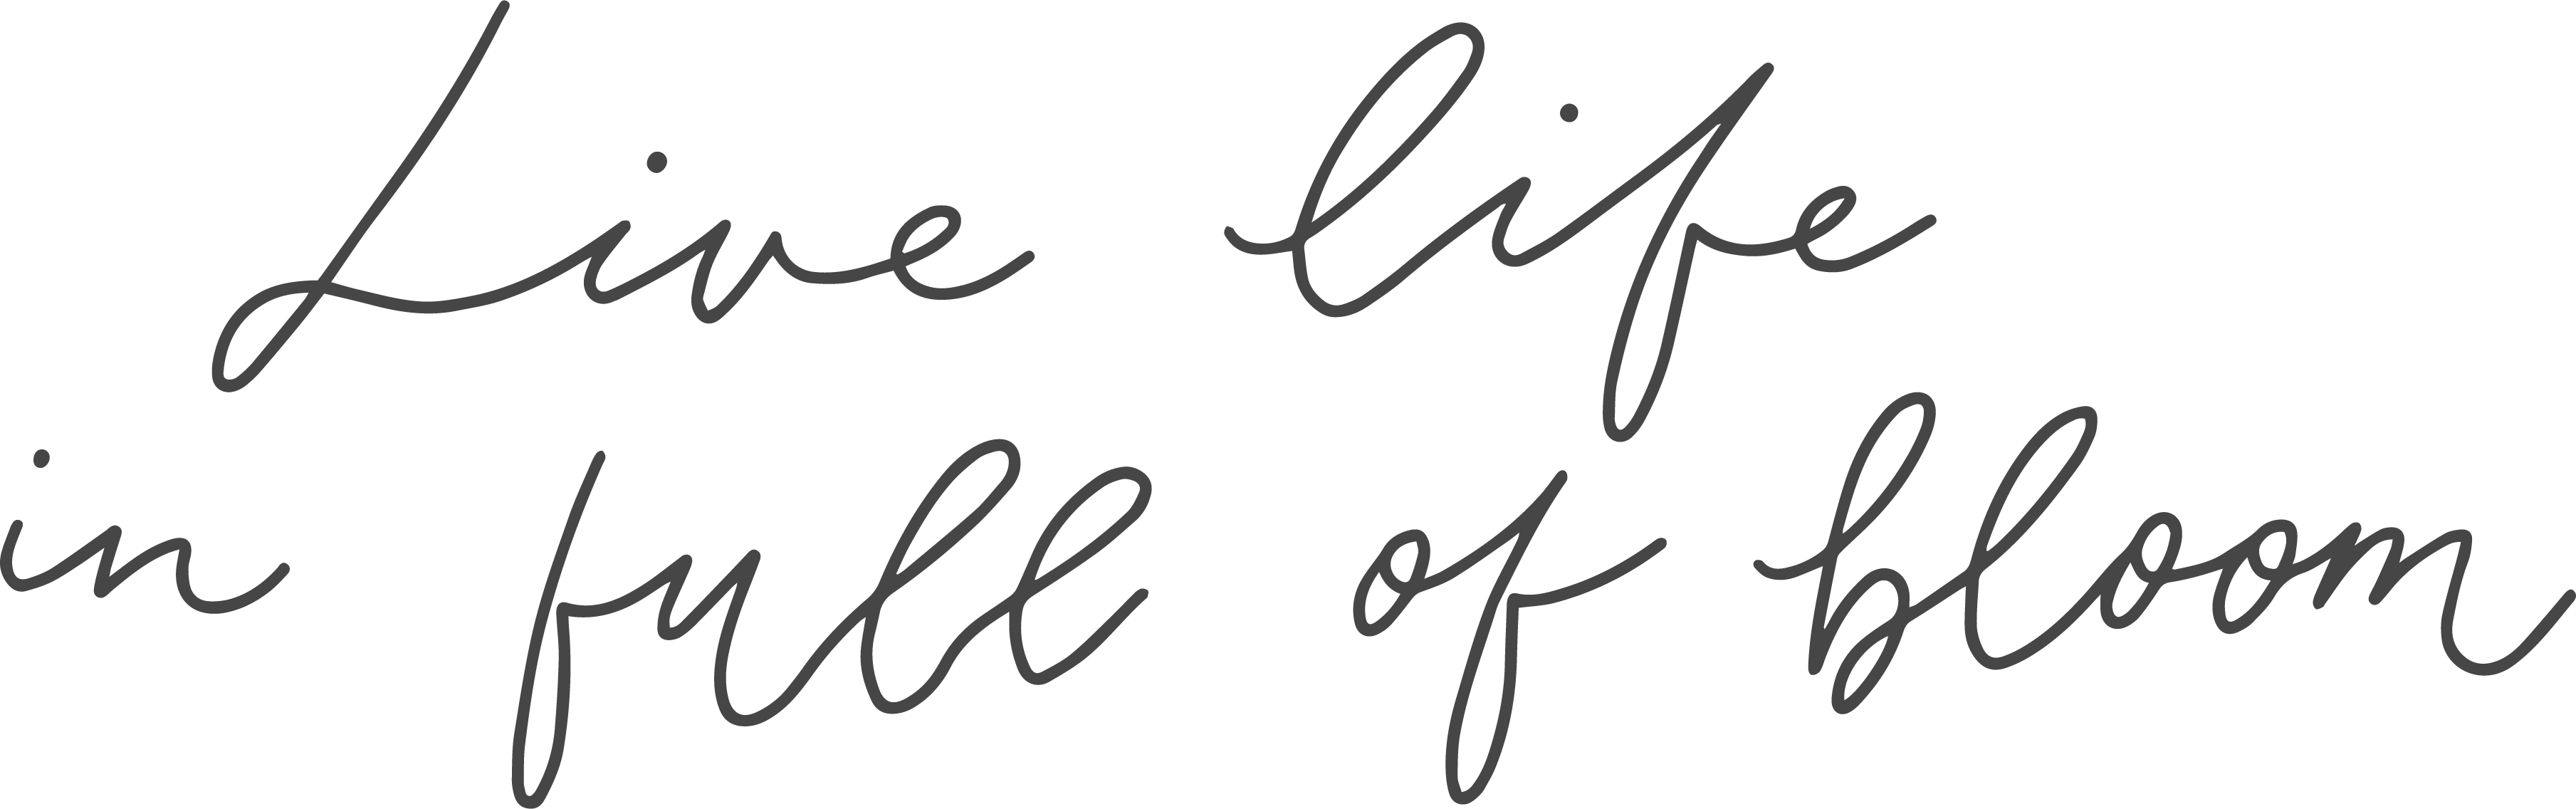 Live life
in full of bloom